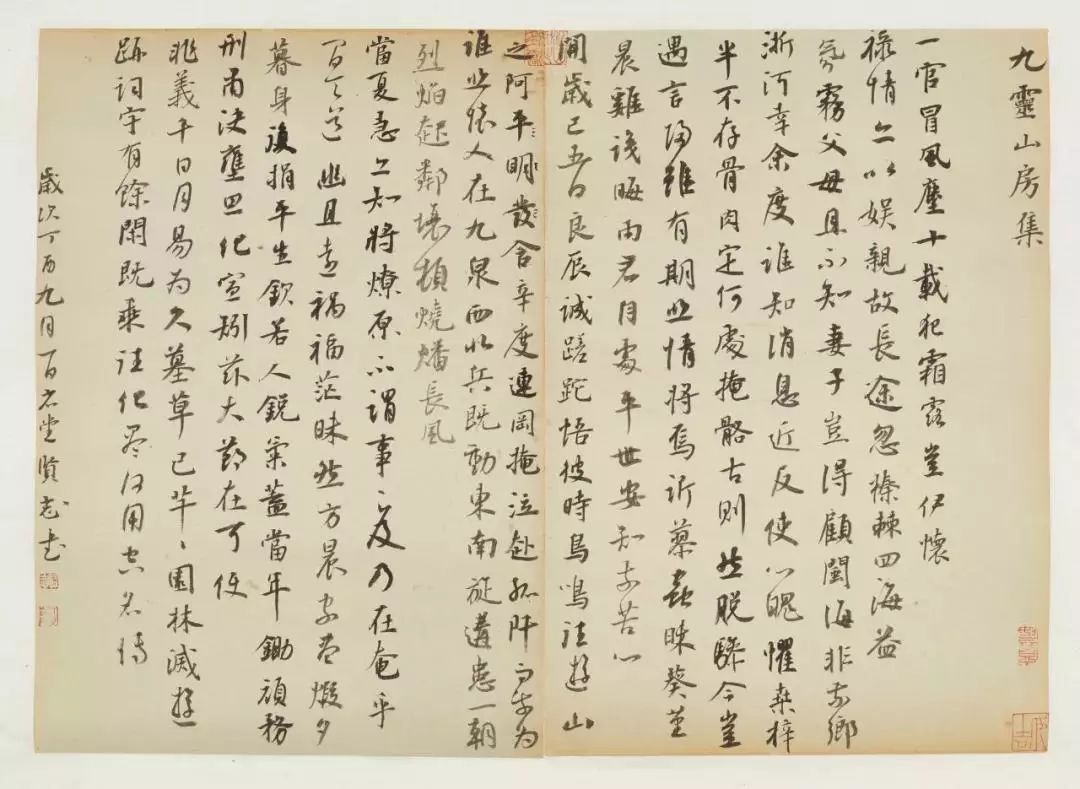 九靈山房集
一官冒風塵十載犯霜露豈伊懷
祿情亦以娛親故長途忽榛棘四海益
氛霧父母且不知妻子豈得顧閩海非吾鄉
浙河幸余度誰知消息近反使心魄懼桑梓
半不存骨肉定何處掩骼古則然脫驂今豈
遇言歸雖有期此情將焉訴蓼蟲昧葵堇
晨雞識晦雨君目處平世安知吾苦心
開歲已五日良辰誠蹉跎悟彼時鳥鳴往遊山
之阿平明發舍辛度連岡掩泣赴孤阡為
誰悲懷人在九泉西北兵既動東南旋遘患一朝
烈焰起鄰壤頓燒燔長風
當夏急亦知將燎原不謂事之反乃在奄乎
幽且遠禍福茫昧然方晨燬夕
暮身後捐平生欽若人銳氣蓋當年鋤頑務
刑甯決壅思化宣矧茲大節在可使
非義干日月易為久墓草已芊芊園林滅遊
跡詞宇有餘閑既乘往化盡何用空名傳
歲次丁酉九月百石堂賢志書